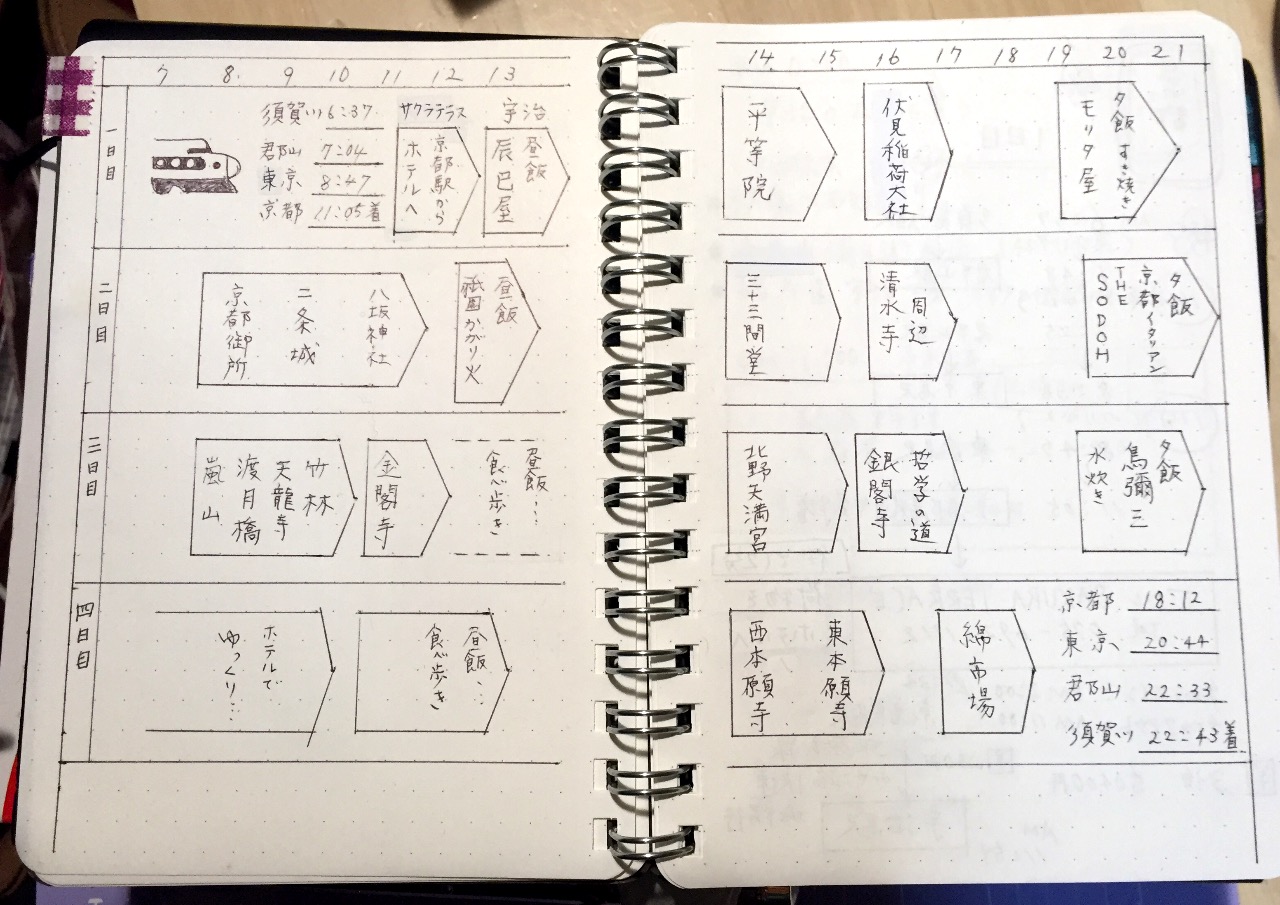 7 8 9 10 11 12 13
一日目
須賀川 6:37
郡山 7:04
東京 8:47
京都 11:05着
サクラテラス
京都駅から
ホテルへ
宇治
昼飯
辰巳屋
二日目
八坂神社
二条城
京都御所
昼飯
祇園かがり火
三日目
竹林
天龍寺
渡月橋
嵐山
金閣寺
昼飯…
食べ歩き
四日目
ホテルで
ゆっくり…
昼飯…
食べ歩き
14 15 16 17 18 19 20 21
平等院
伏見稲荷大社
夕飯 すき焼き
モリタ屋
三十三間堂
周辺
清水寺
夕飯
京都イタリアン
THE
SODOH
北野天満宮
哲学の道
銀閣寺
夕飯
鳥彌三
水炊き
東本願寺
西本願寺
錦市場
京都 18:12
東京 20:44
郡山 22:33
須賀川 22:43着